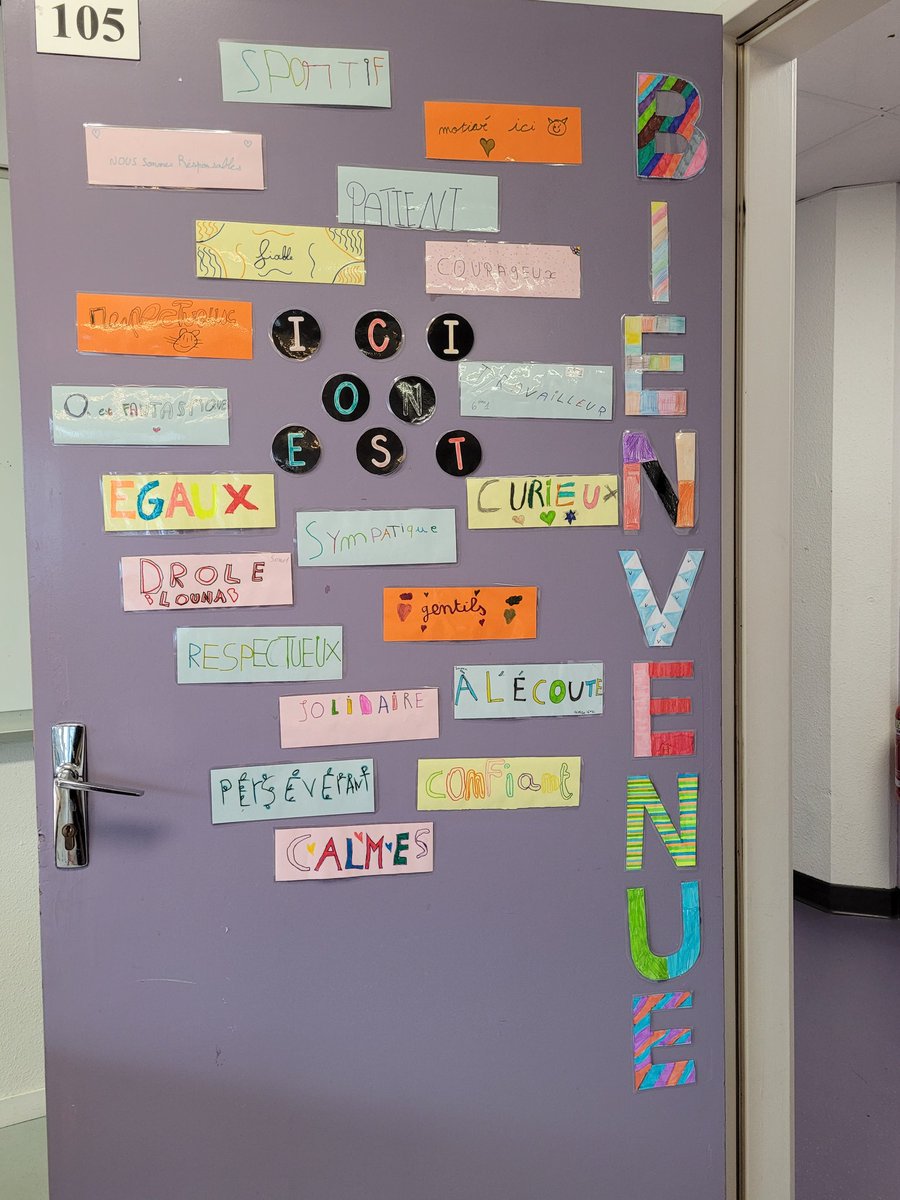 105
SPORTIF
motivé ici
NOUS sommes Résponsables
PATIENT
fiable
COURAGEUX
Respectueux
ICI
ON
EST
TRAVAILLEUR
6ème1
On est FANTASTIQUE
EGAUX
CURIEUX
SYmPATique
DROLE
LOUNA
gentils
RESPECTUEUX
À L'ÉCOUTE
SOLIDAIRE
PÉRSÉVÉRANT
CONFiant
CALMES
BIENVENUE